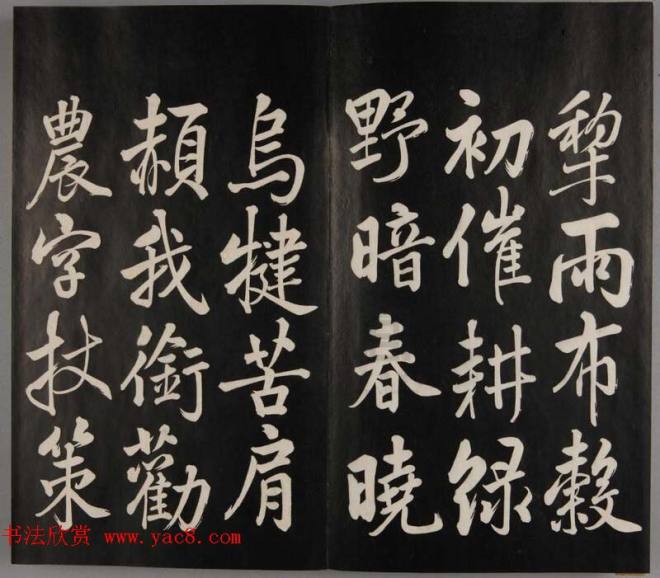 犂雨布穀
初催耕綠
野暗春曉
烏犍苦肩
頳我銜勸
農字杖策
书法欣赏 www.yac8.com